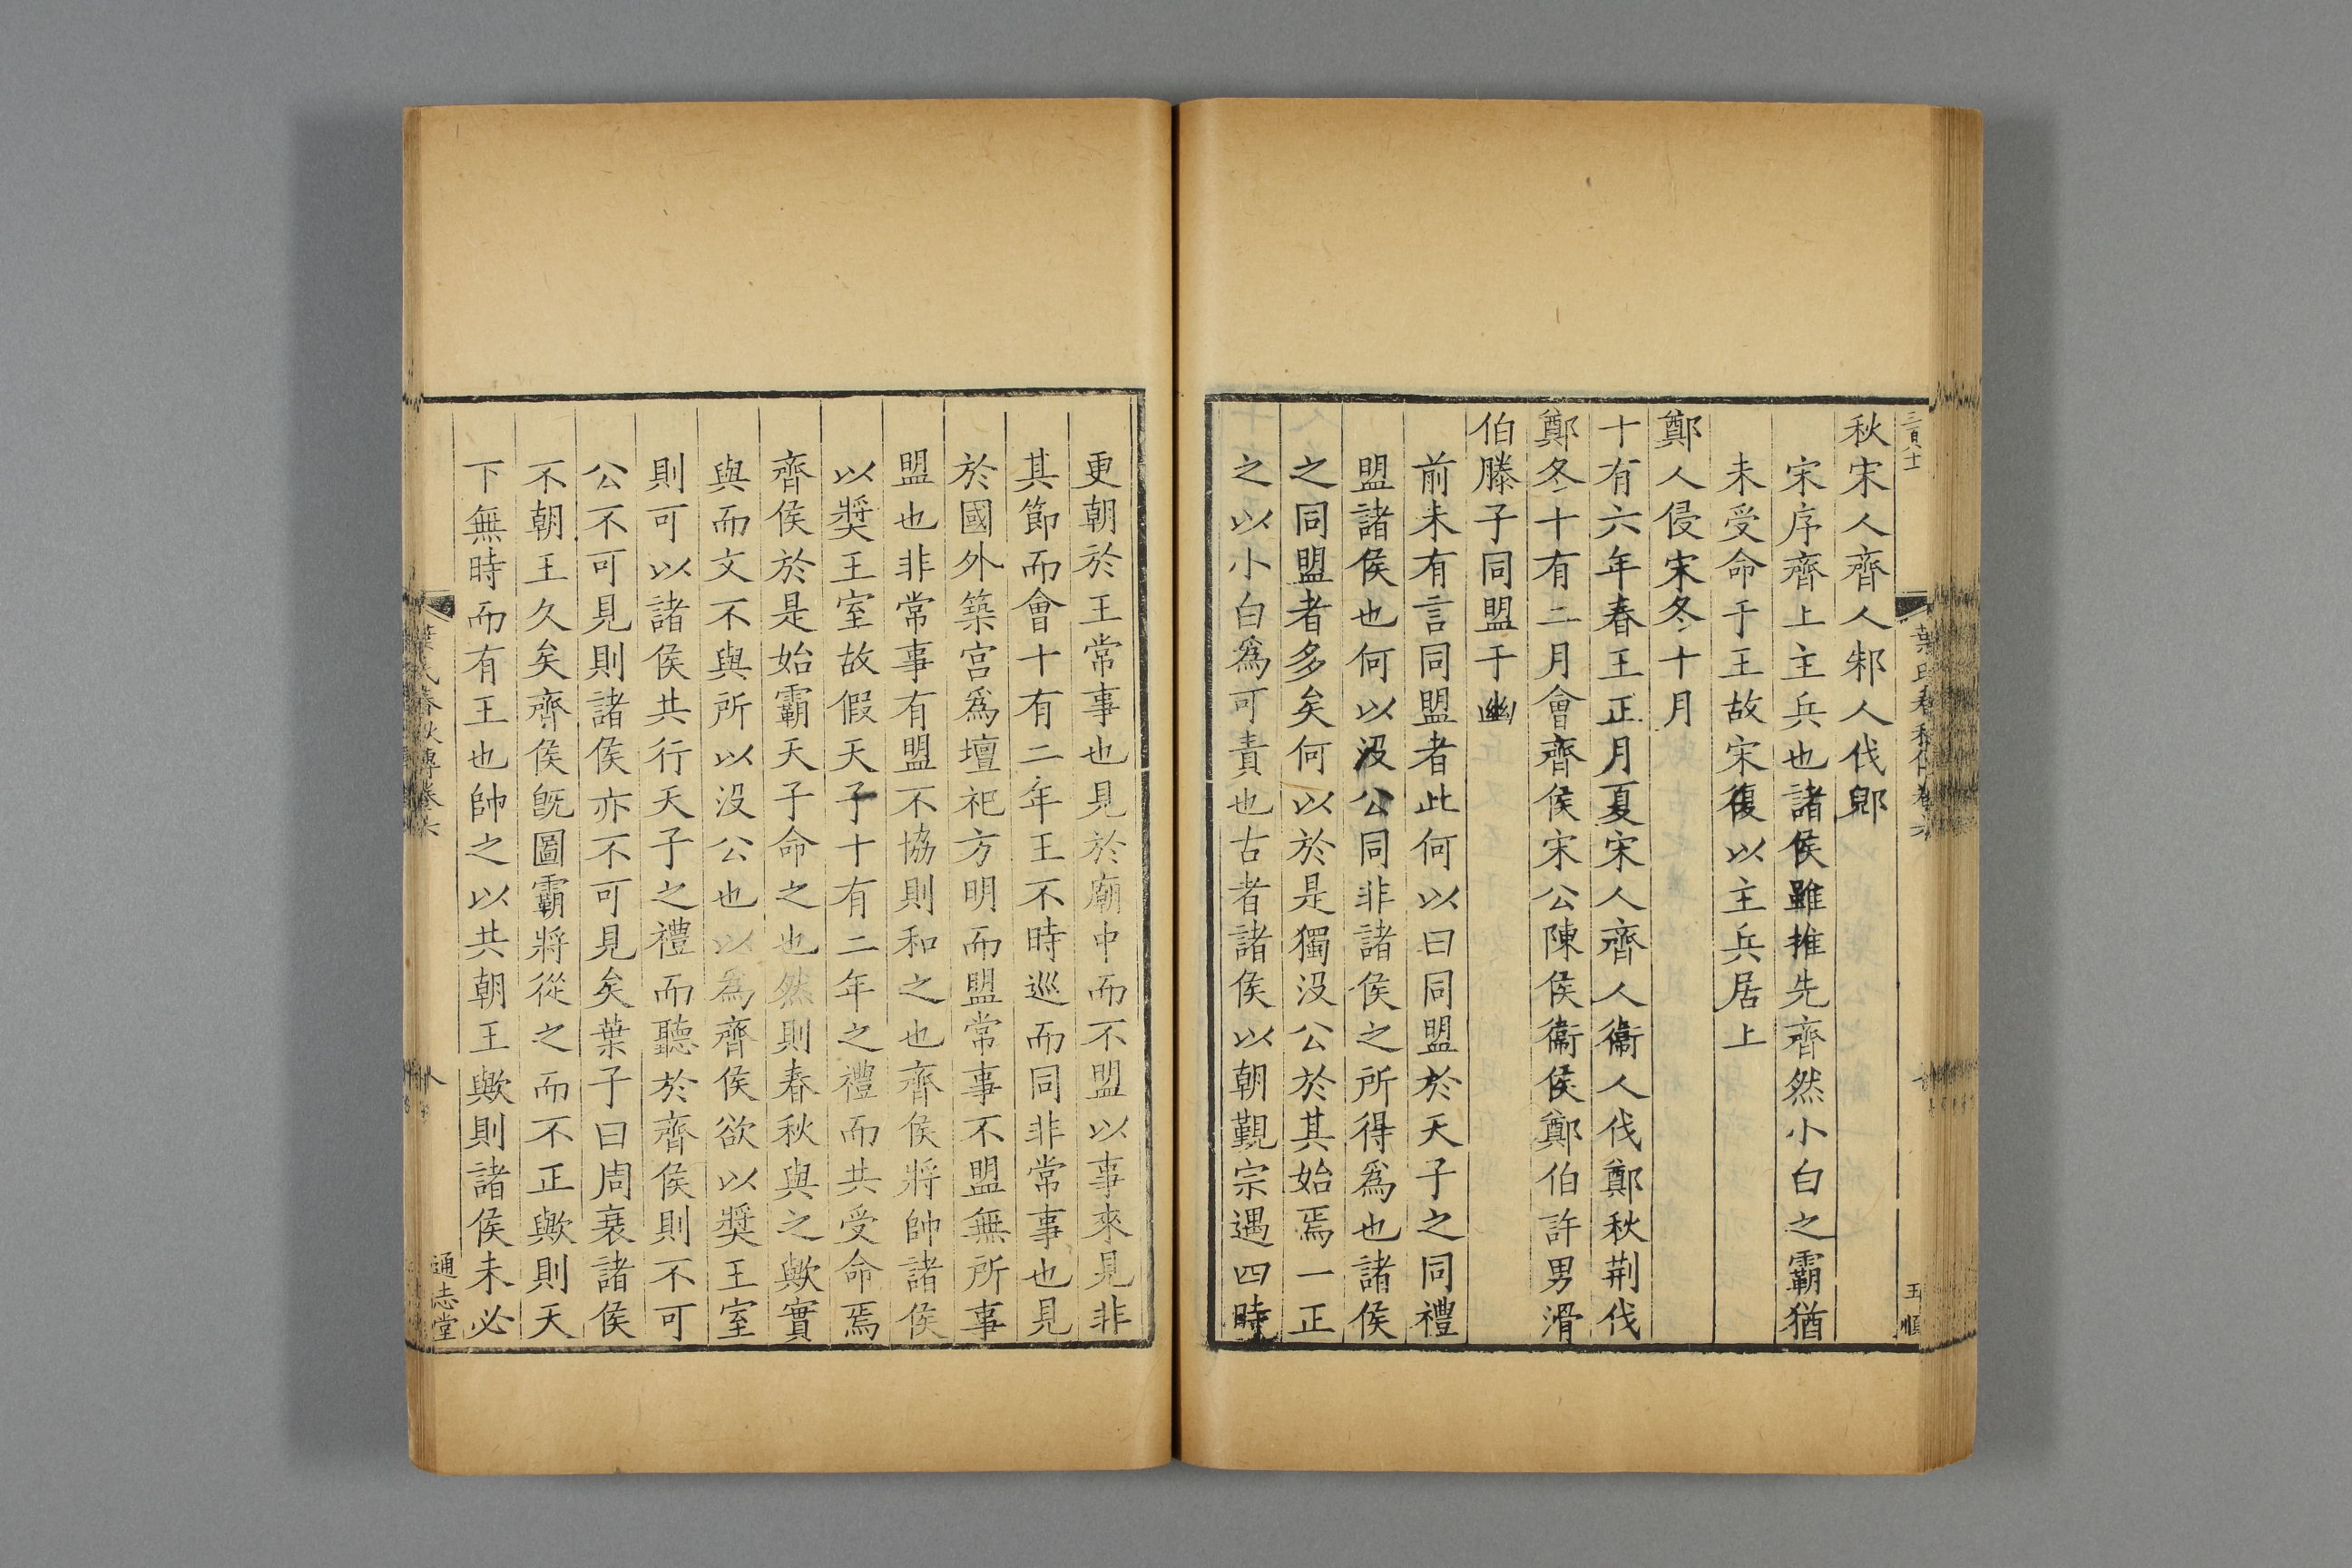 三百八十
秋宋人齊人邾人伐郳
宋序齊上主兵也諸侯雖推先齊然小白之霸猶
未受命于王故宋復以主兵居上
鄭人侵宋冬十月
十有六年春王正月夏宋人齊人衞人伐鄭秋荆伐
鄭冬十有二月會齊侯宋公陳侯衞侯鄭伯許男滑
伯滕子同盟于幽
前未有言同盟者此何以曰同盟於天子之同禮
盟諸侯也何以没公同非諸侯之所得爲也諸侯
之同盟者多矣何以於是獨没公於其始焉一正
之以小白爲可責也古者諸侯以朝覲宗遇四時
更朝於王常事也見於廟中而不盟以事來見非
其節而會十有二年王不時巡而同非常事也見
於國外築宫爲壇祀方明而盟常事不盟無所事
盟也非常事有盟不協則和之也齊侯將帥諸侯
以奬王室故假天子十有二年之禮而共受命焉
齊侯於是始霸天子命之也然則春秋與之歟實
與而文不與所以没公也以爲齊侯欲以奬王室
則可以諸侯共行天子之禮而聽於齊侯則不可
公不可見則諸侯亦不可見矣葉子曰周衰諸侯
不朝王久矣齊侯旣圖霸將從之而不正歟則天
下無時而有王也帥之以共朝王歟則諸侯未必
葉氏春秋傳卷六
通志堂